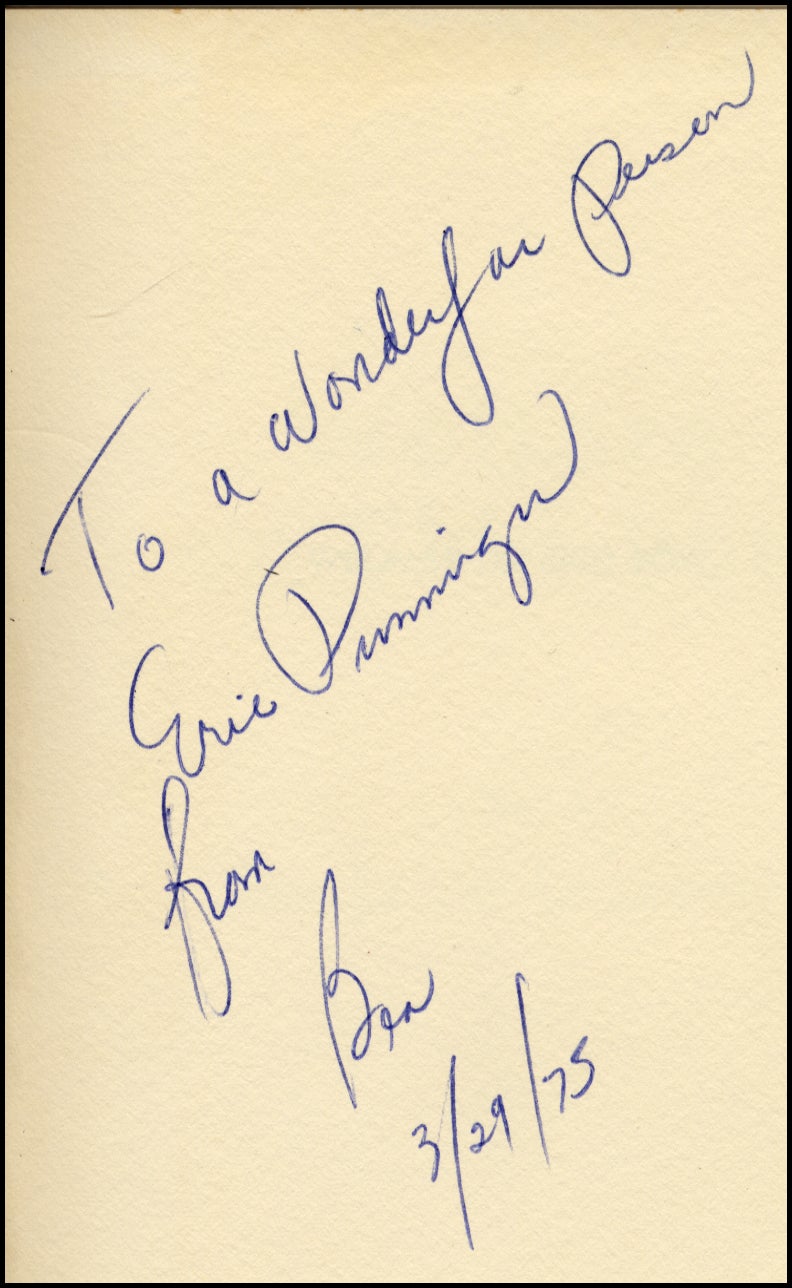 To a Wonderful person
Eric
from
Ben
3/29/75